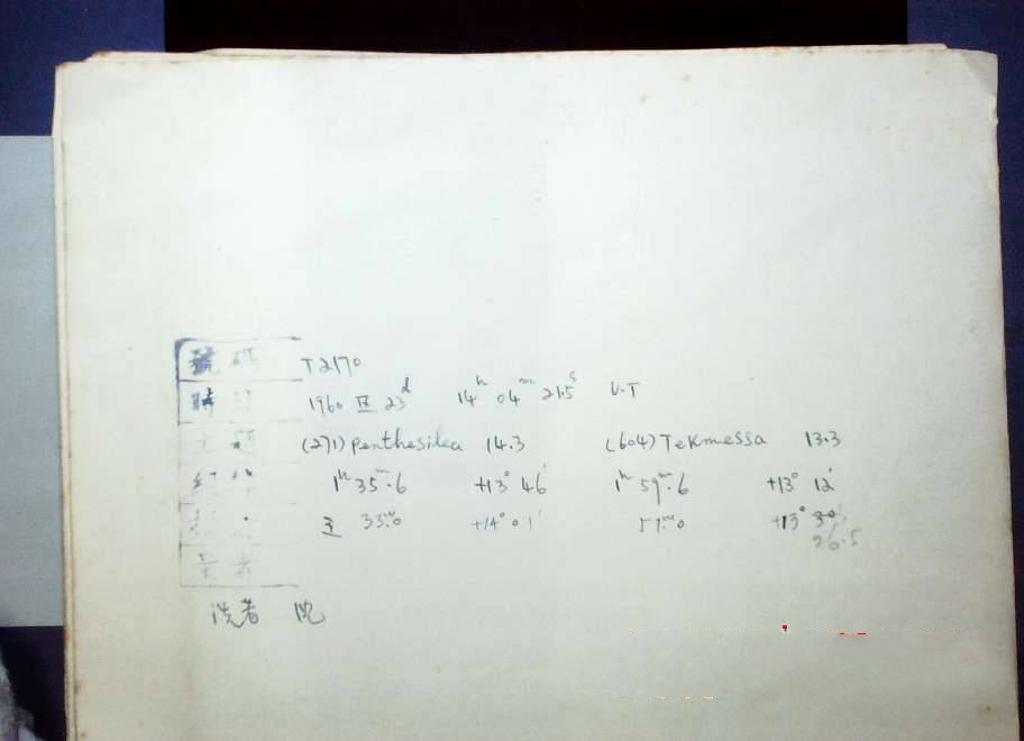 號碼 T2170
時 1960 IX 23ᵈ 14ʰ 04ᵐ 21.5ˢ U.T
(271) Penthesilea 14.3 (604) Tekmessa 13.3
1ʰ 35ᵐ.6 +13° 46' 1ʰ 59ᵐ.6 +13° 12'
33ᵐ.0 +14° 01' 57ᵐ.0 +13° 30'
26.5
洗者 沈